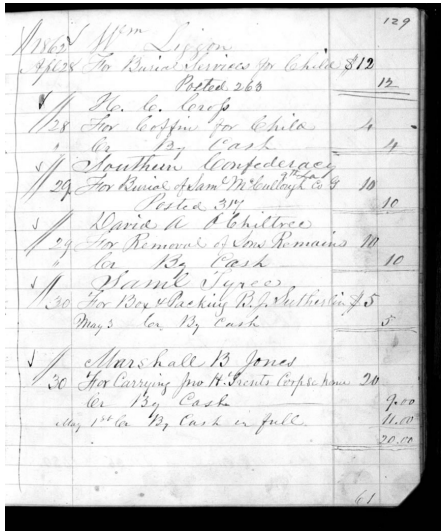 129
1862 Wm Liggon
Apl 28 For Burial Services for Child $12
Posted 263 12
" H. C. Cross
28 For Coffin for Child 4
" Cr By Cash 4
" Southern Confederacy
29 For Burial of Saml McCullough Co G 7th La 10
Posted 317 10
" David A P Chiltree
29 For Removal of Sons Remains 10
" Cr By Cash 10
" Saml Tyree
30 For Box & Packing B. J. Sutherlin $5
May 3 Cr By Cash 5
" Marshall B Jones
30 For Carrying Jno H. Trents Corpse home 20
Cr By Cash 9.00
May 1st Cr By Cash in full 11.00
20.00
61